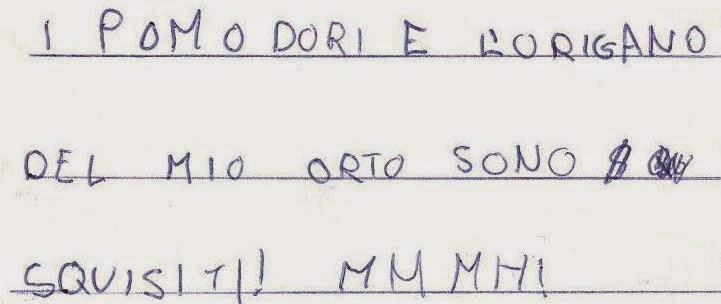 I POMODORI E L'ORIGANO
DEL MIO ORTO SONO
SQUISITI! MMMM!